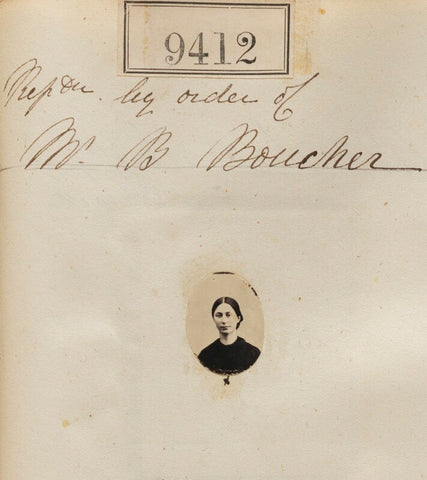 9412
Repdn. by order of
Mr. B Boucher